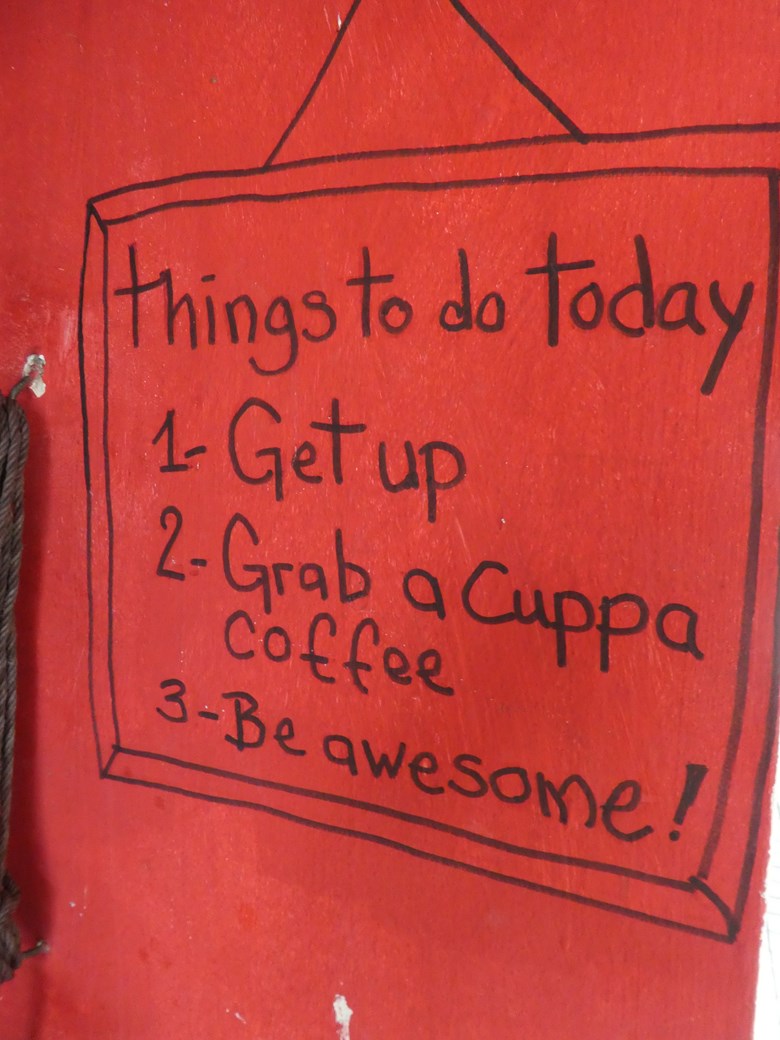 things to do today
1- Get up
2- Grab a Cuppa
coffee
3- Be awesome!